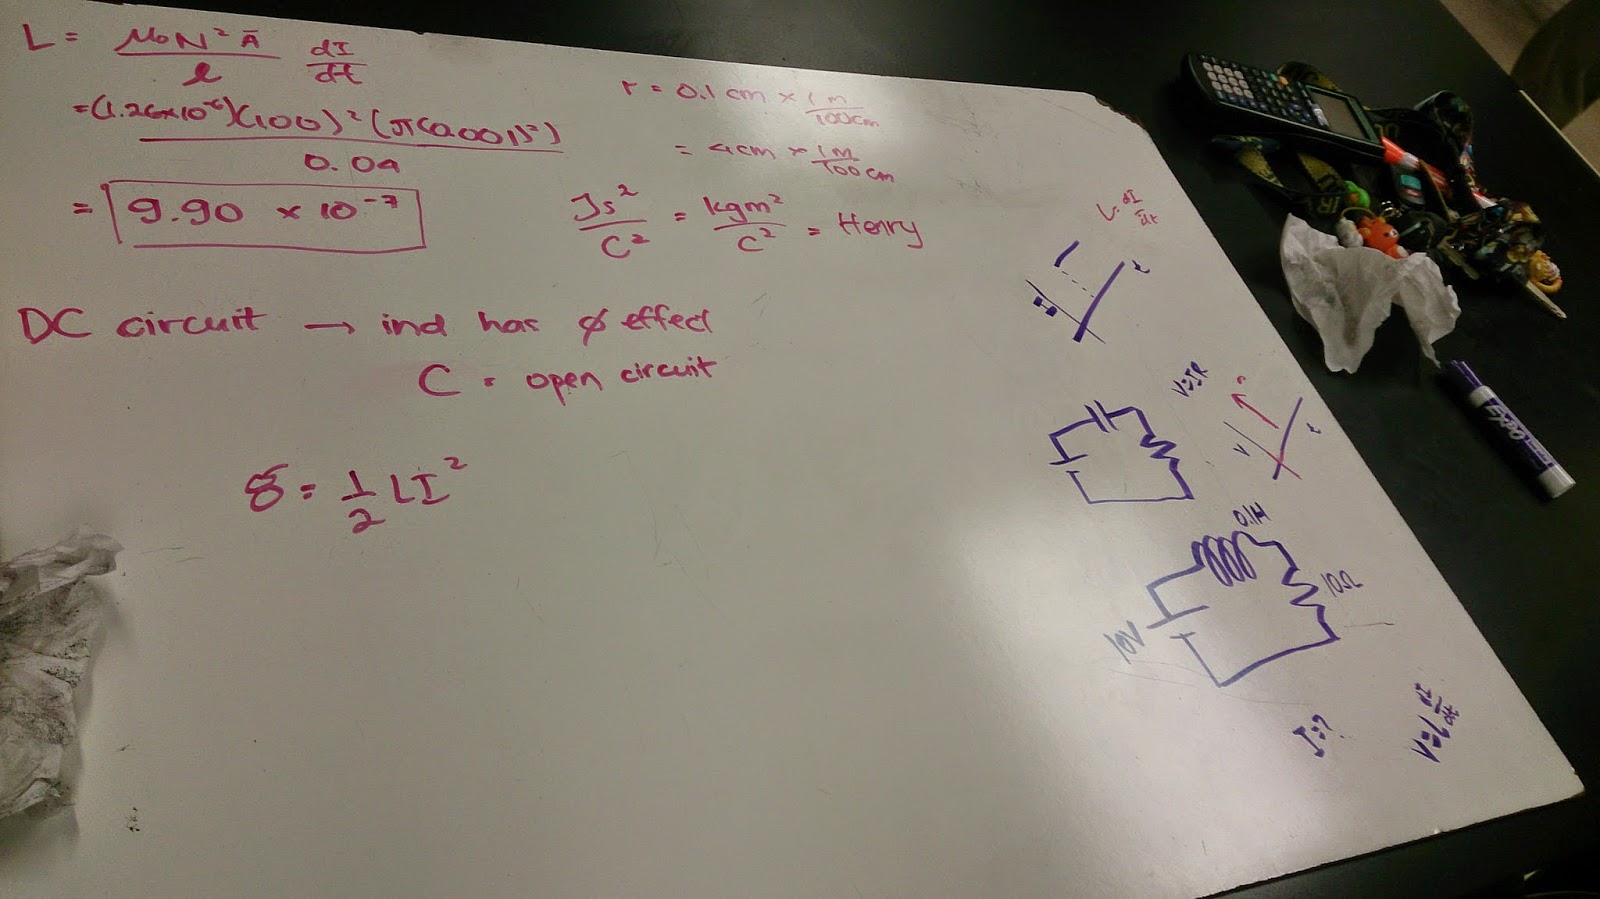 L = μ₀N²A / l dI/dt
= (1.26×10⁻⁶)(100)²(π(0.001)²) / 0.04
= 9.90 × 10⁻⁷
r = 0.1 cm × 1 m / 100 cm
= 4 cm × 1 m / 100 cm
Js² / C² = kgm² / C² = Henry
DC circuit → ind has ∅ effect
C = open circuit
ε = 1/2 LI²
L · dI/dt
t
V=IR
V
t
0.1H
10Ω
10V
I=?
V=L dI/dt
EXPO